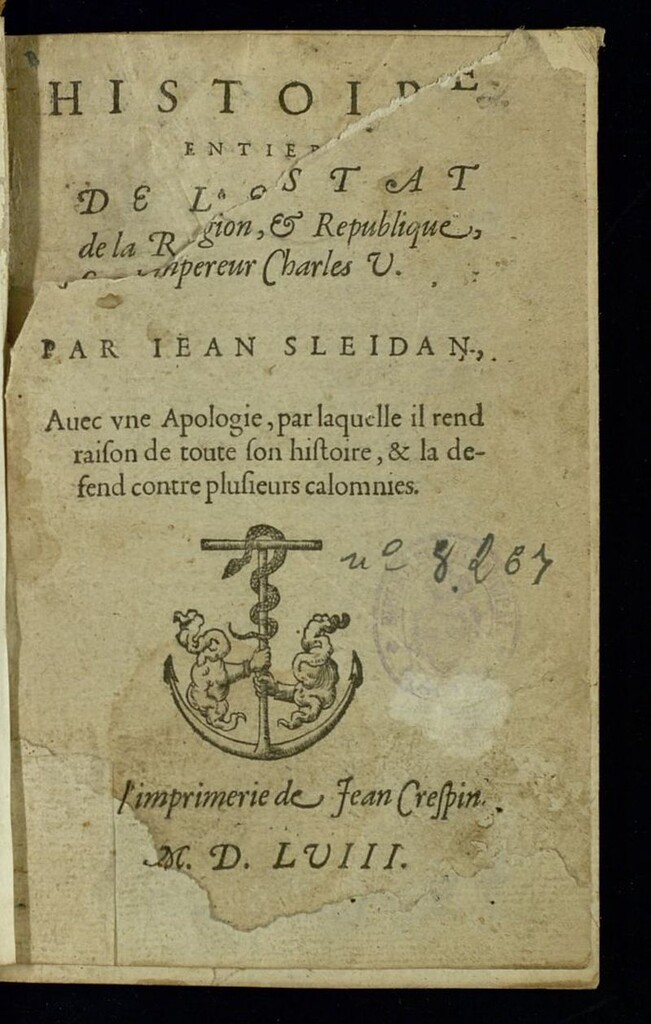 HISTOIRE
ENTIER
DE L'ESTAT
de la Religion, & Republique,
Empereur Charles V.
PAR IEAN SLEIDAN,
Auec vne Apologie, par laquelle il rend
raiſon de toute ſon hiſtoire, & la de-
fend contre pluſieurs calomnies.
nº 8.267
l'imprimerie de Jean Creſpin.
M. D. LVIII.